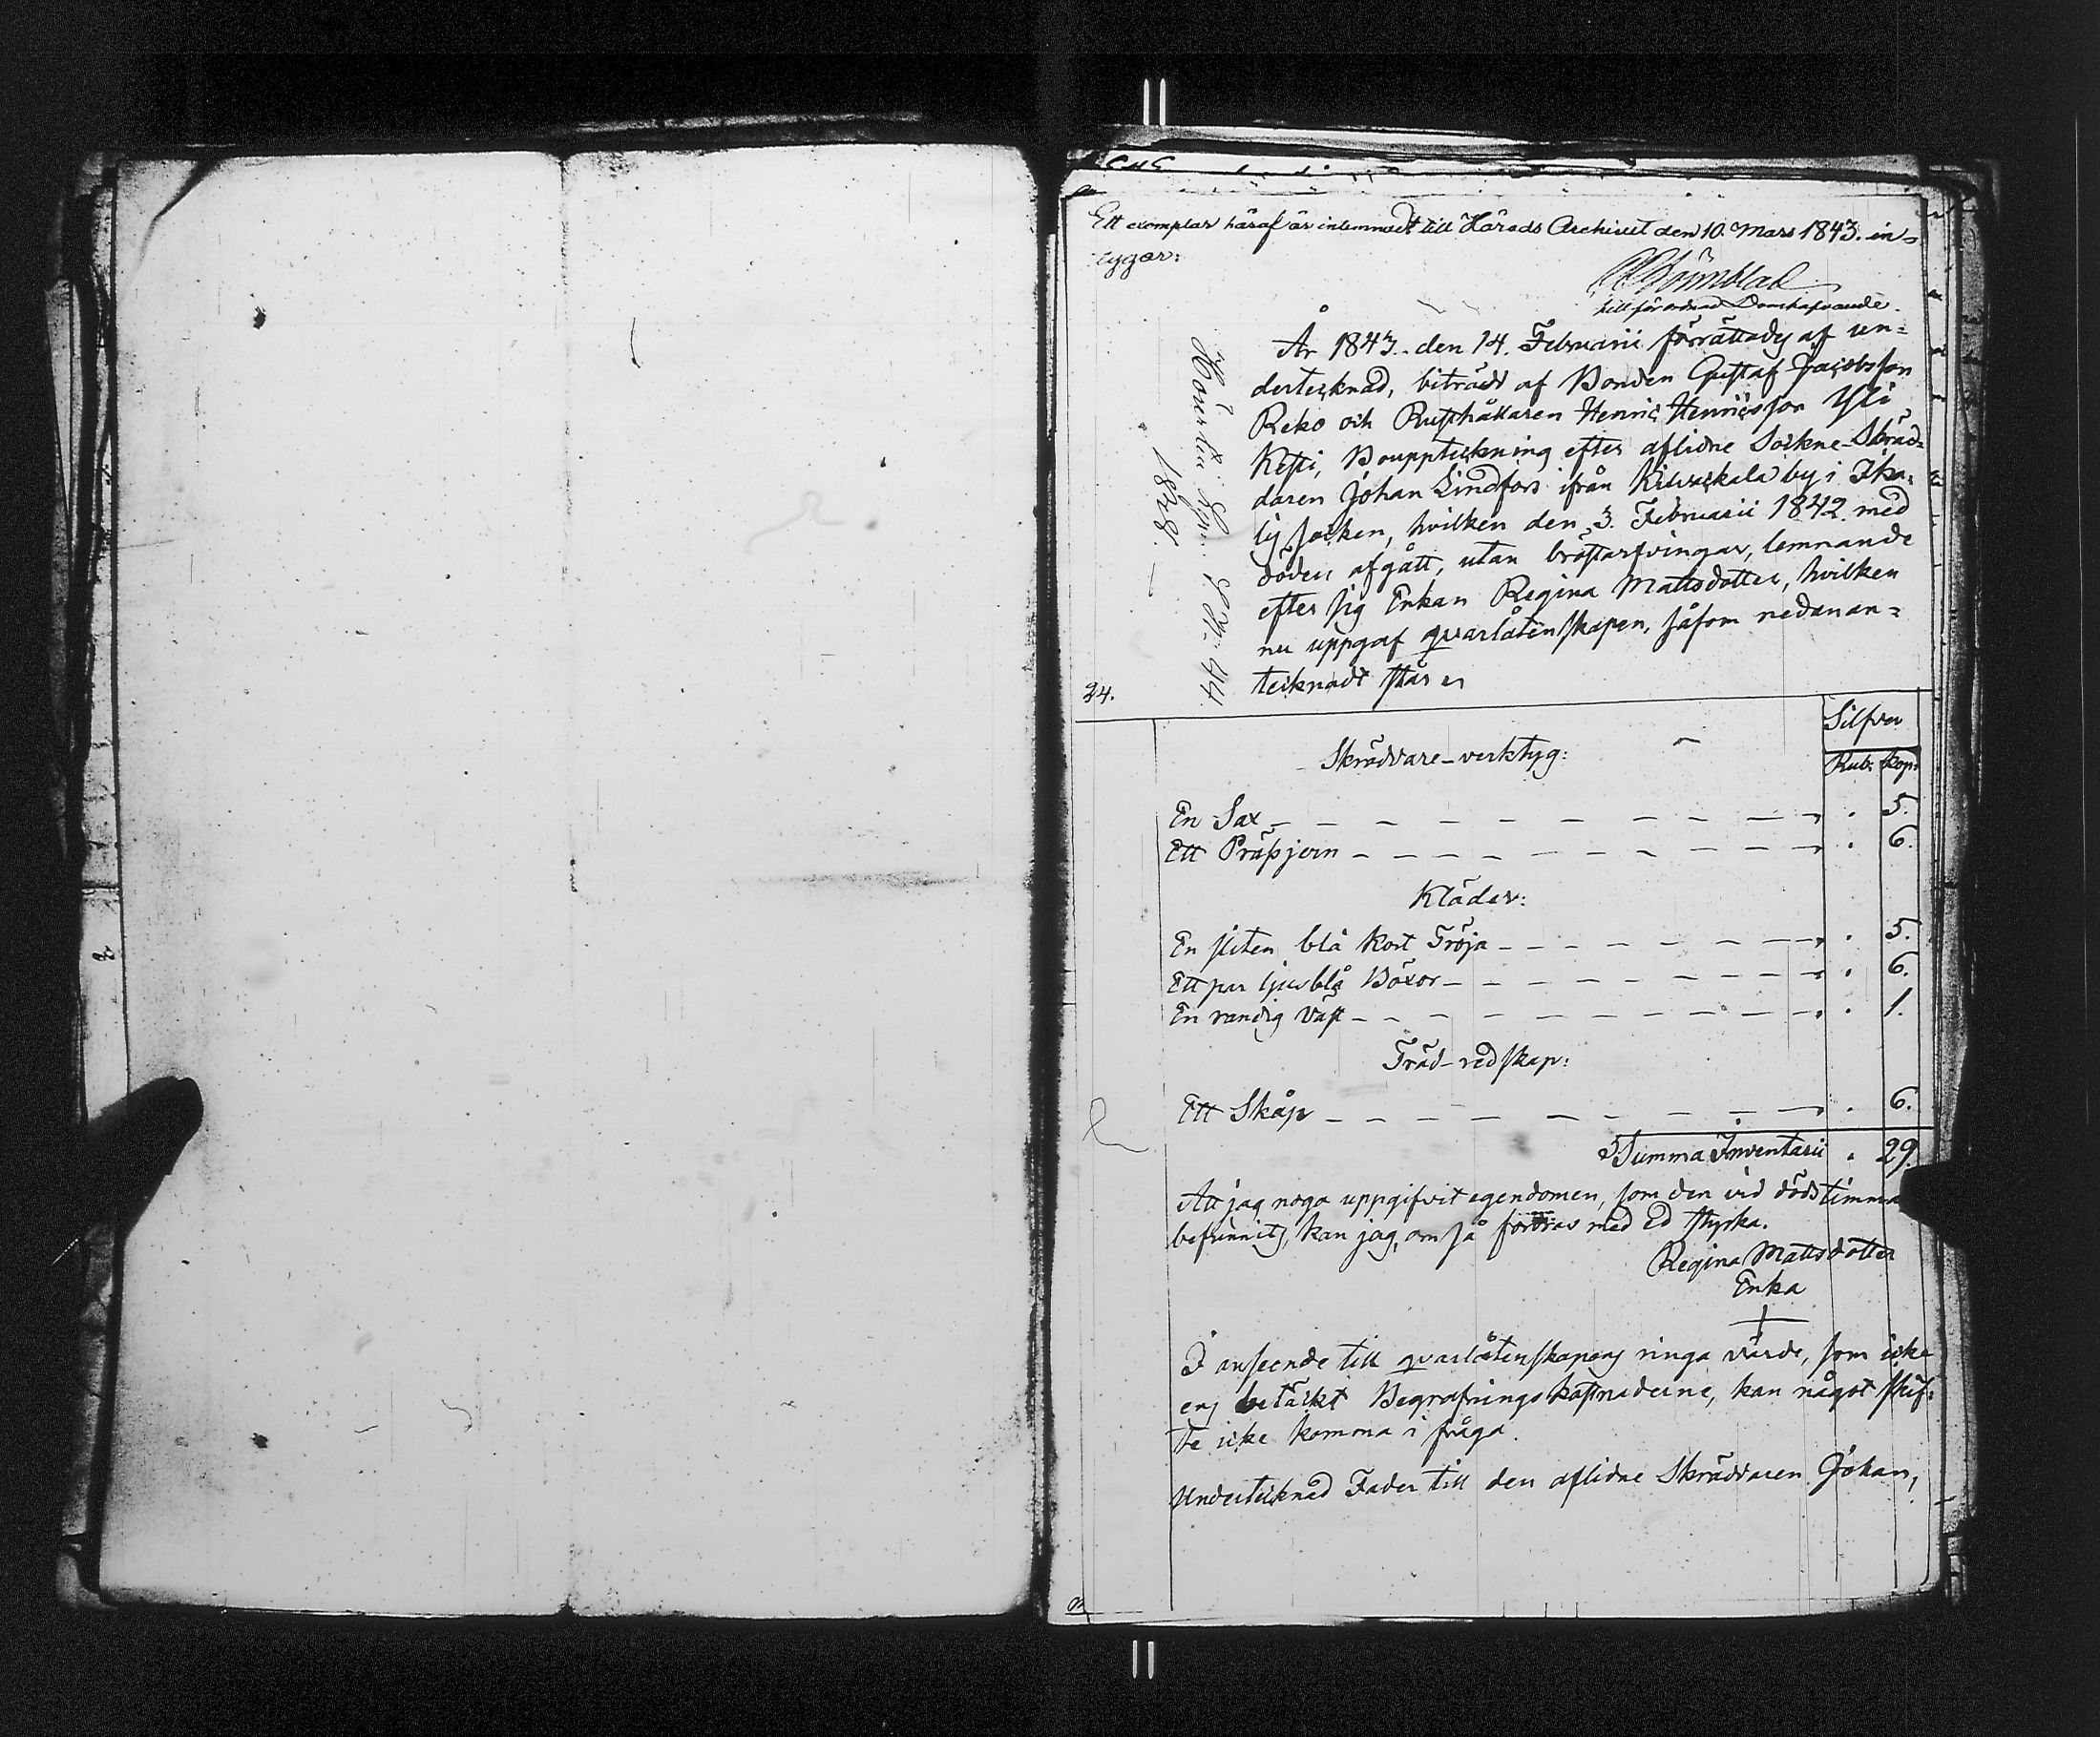 Ett exemplar häraf är inlemnadt till Härads Archivet den 10. Mars 1843. in-
tygar:
tillförordnad Domhafvande.
År 1843. den 14. Februarii förrättades af un=
dertecknad, biträdd af Bonden Gustaf Jacobsson
Reko och Rusthållaren Henric Henricsson Yli
Kesti, Bouppteckning efter aflidne Sockne-Skräd=
daren Johan Lindfors ifrån Kilvackala by i Ika=
lis socken, hvilken den 3. Februarii 1842 med
döden afgått, utan bröstarfvingar, lemnande
efter sig Enkan Regina Mattsdotter, hvilken
nu uppgaf qvarlåtenskapen, såsom nedanan=
tecknadt står
24.
1828.
Silfver
Skräddare-verktyg:
Rub: kop:
En Sax - - - - . 5.
Ett Präsjern - - - - . 6.
Kläder:
En sliten blå kort Tröja - - - - . 5.
Ett par ljusblå Böxor - - - - . 6.
En randig Väst - - - - . 1.
Träd-redskap:
Ett Skåp - - - - . 6.
Summa Inventarii . 29.
Att jag noga uppgifvit egendomen, som den vid dödstimman
befunnits, kan jag, om så fordras med Ed styrka.
Regina Mattsdotter
Enka
I anseende till qvarlåtenskapens ringa värde, som icke
ens betäckt Begrafningskostnaderne, kan något skif=
te icke komma i fråga.
Undertecknad Fader till den aflidne Skräddaren Johan,